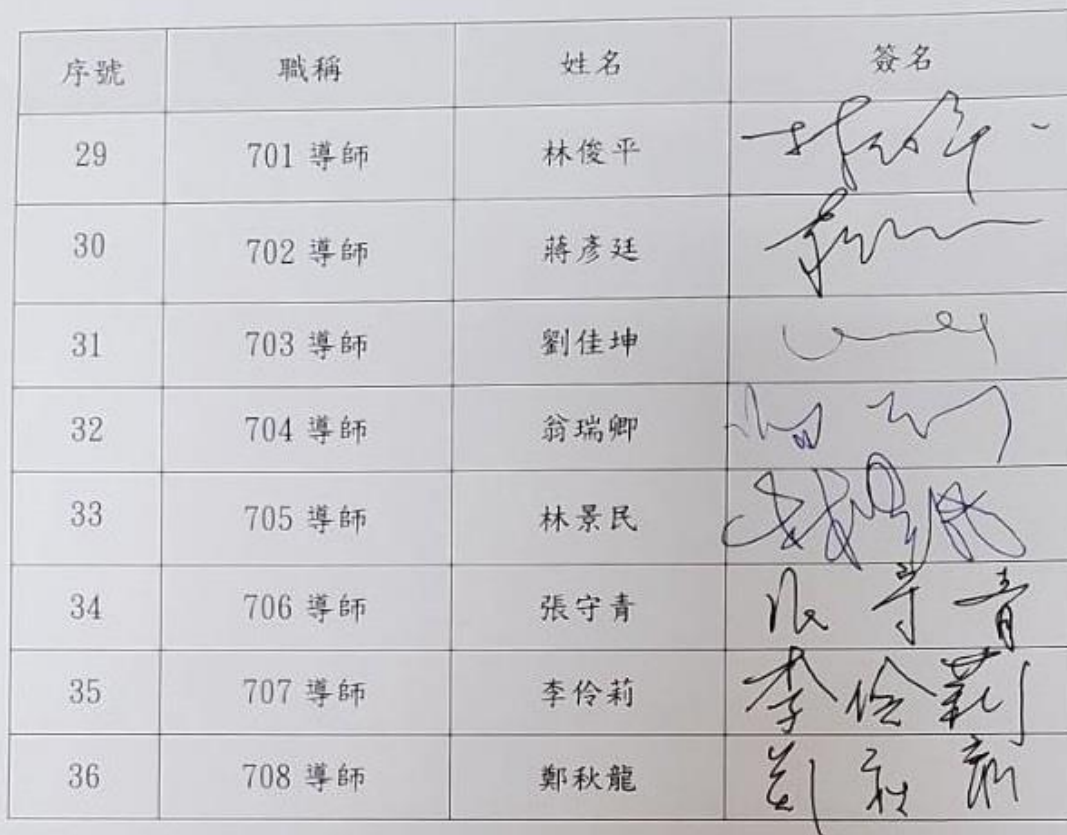 序號 職稱 姓名 簽名
29 701 導師 林俊平
30 702 導師 蔣彥廷
31 703 導師 劉佳坤
32 704 導師 翁瑞卿
33 705 導師 林景民
34 706 導師 張守青 張守青
35 707 導師 李伶莉 李伶莉
36 708 導師 鄭秋龍